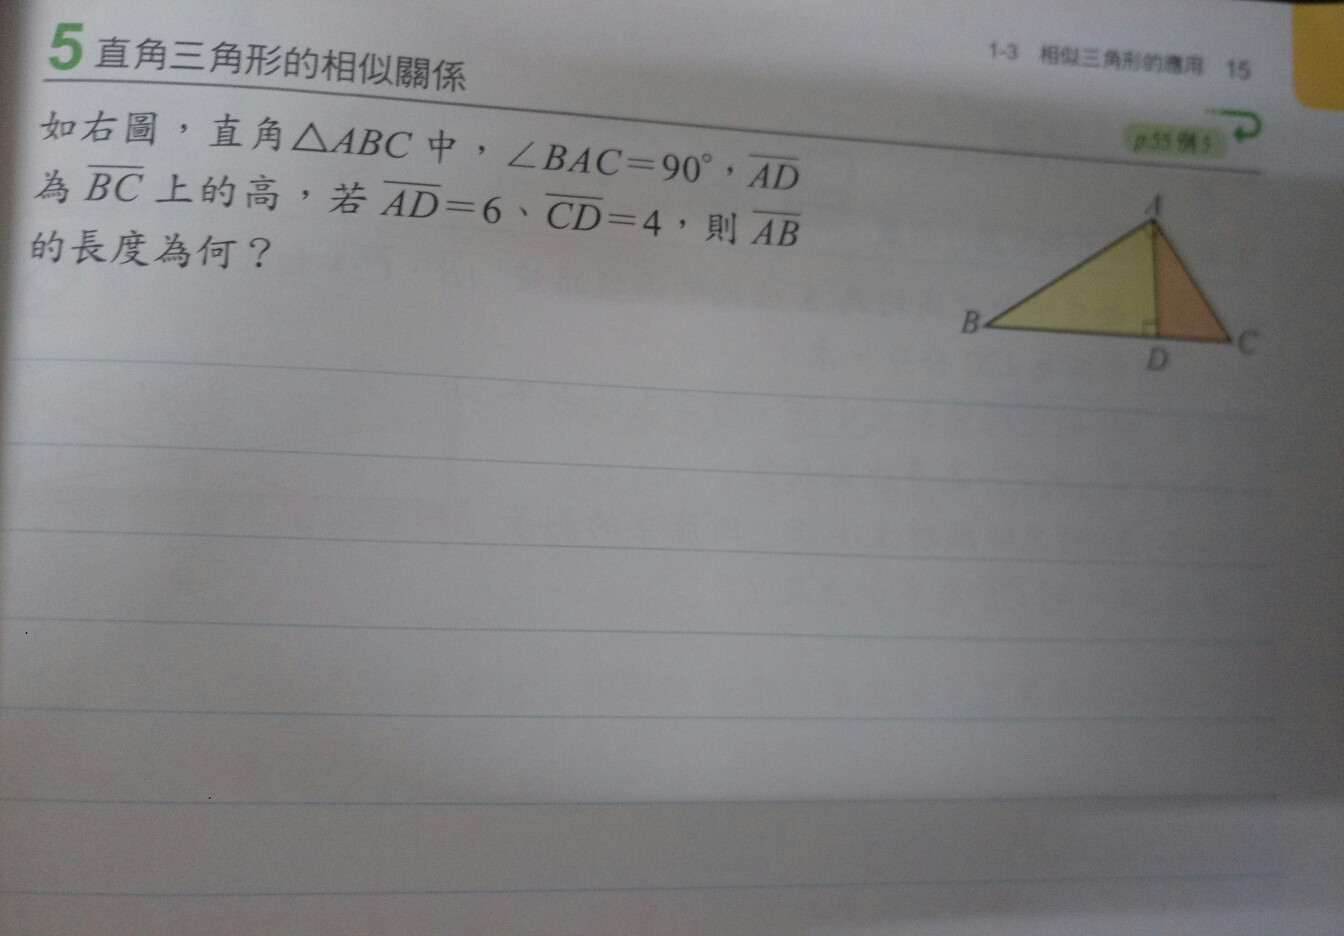 5 直角三角形的相似關係
1-3 相似三角形的應用 15
p.55 例 5
如右圖，直角△ABC 中，∠BAC=90°，AD
為 BC 上的高，若 AD=6、CD=4，則 AB
的長度為何？
A
B
D
C